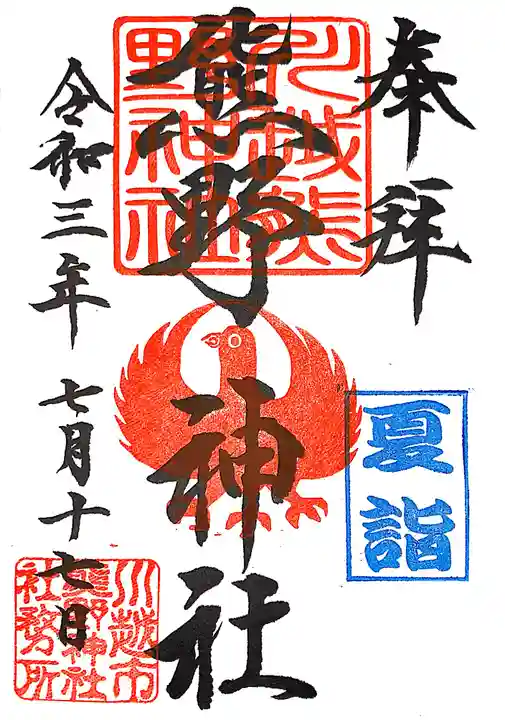 奉拝
夏詣
川越熊
野神社
熊野神社
令和三年七月十七日
川越市
熊野神社
社務所